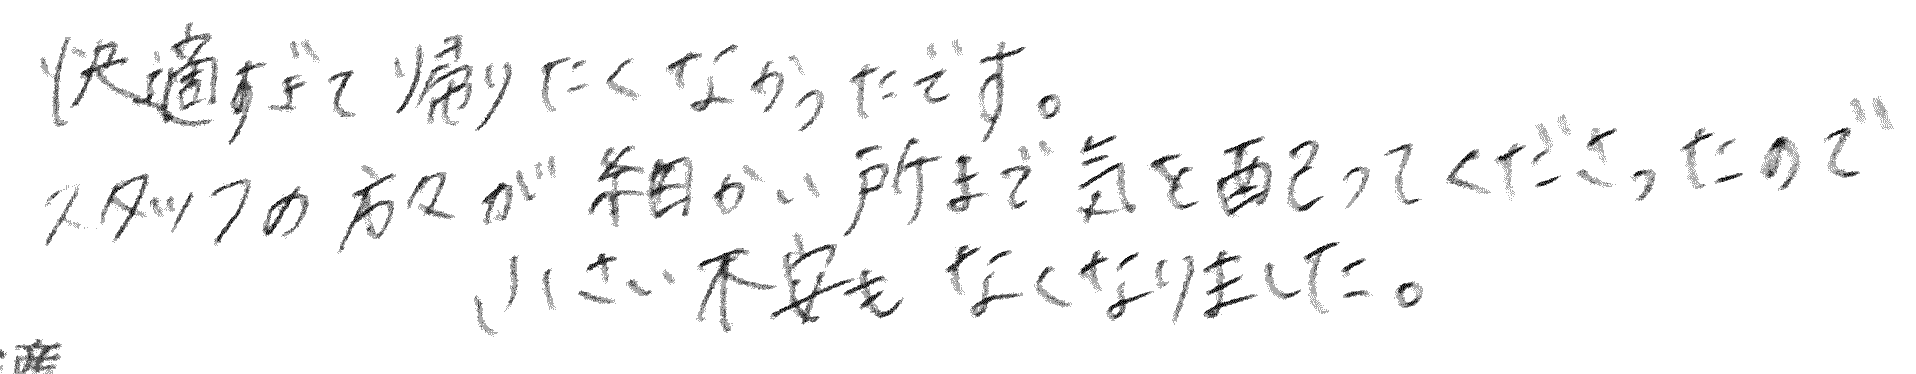 快適すぎて帰りたくなかったです。
スタッフの方々が細かい所まで気を配ってくださったので
小さい不安もなくなりました。